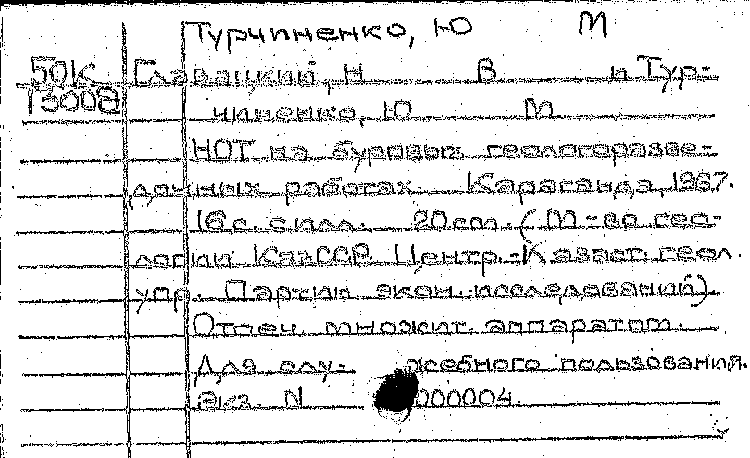 Турчиненко, Ю М
50К Главацкий, Н В и Тур-
13008 чиненко, Ю М
НОТ на буровых геологоразве-
дочных работах Караганда, 1967.
16 с. с илл. 20 см. (М-во гео-
логии КазССР. Центр.-Казахст. геол.
упр. Партия экон. исследований).
Отпеч. множит. аппаратом.
Для слу- жебного пользования.
Экз. N 000004.